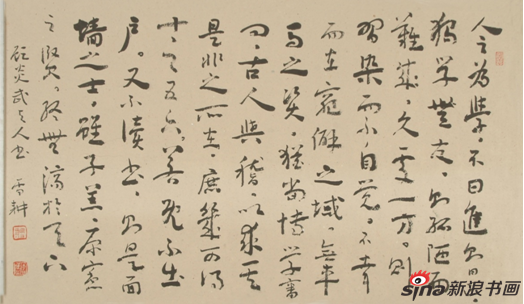 人之為學不日進則日退
獨學無友則孤陋而
難成久處一方則
習染而不自覺不幸
而在窮僻之域無車
馬之資猶當博學審
問古人與稽以求其
是非之所在庶幾可得
十之五六若既不出
户又不讀書則是面
墙之士雖子羔原憲
之賢終無濟於天下
顧炎武與人書 雪耕
sina新浪书画